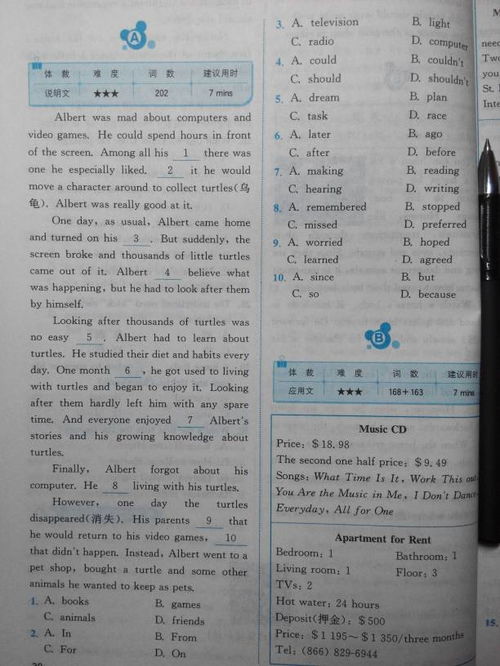 A
体 裁 难 度 词 数 建议用时
说明文 ★★★ 202 7 mins
Albert was mad about computers and
video games. He could spend hours in front
of the screen. Among all his 1 there was
one he especially liked. 2 it he would
move a character around to collect turtles(乌
龟). Albert was really good at it.
One day, as usual, Albert came home
and turned on his 3 . But suddenly, the
screen broke and thousands of little turtles
came out of it. Albert 4 believe what
was happening, but he had to look after them
by himself.
Looking after thousands of turtles was
no easy 5 . Albert had to learn about
turtles. He studied their diet and habits every
day. One month 6 , he got used to living
with turtles and began to enjoy it. Looking
after them hardly left him with any spare
time. And everyone enjoyed 7 Albert's
stories and his growing knowledge about
turtles.
Finally, Albert forgot about his
computer. He 8 living with his turtles.
However, one day the turtles
disappeared(消失). His parents 9 that
he would return to his video games, 10
that didn't happen. Instead, Albert went to a
pet shop, bought a turtle and some other
animals he wanted to keep as pets.
1. A. books B. games
C. animals D. friends
2. A. In B. From
C. For D. On
3. A. television B. light
C. radio D. computer
4. A. could B. couldn't
C. should D. shouldn't
5. A. dream B. plan
C. task D. race
6. A. later B. ago
C. after D. before
7. A. making B. reading
C. hearing D. writing
8. A. remembered B. stopped
C. missed D. preferred
9. A. worried B. hoped
C. learned D. agreed
10. A. since B. but
C. so D. because
B
体 裁 难 度 词 数 建议用时
应用文 ★★★ 168+163 7 mins
Music CD
Price: $18.98
The second one half price: $9.49
Songs: What Time Is It, Work This out
You Are the Music in Me, I Don't Dance
Everyday, All for One
Apartment for Rent
Bedroom: 1 Bathroom: 1
Living room: 1 Floor: 3
TVs: 2
Hot water: 24 hours
Deposit(押金): $500
Price: $1 195~$1 350/three months
Tel: (866) 829-6944
need
Two
you
St.
Inte
15.